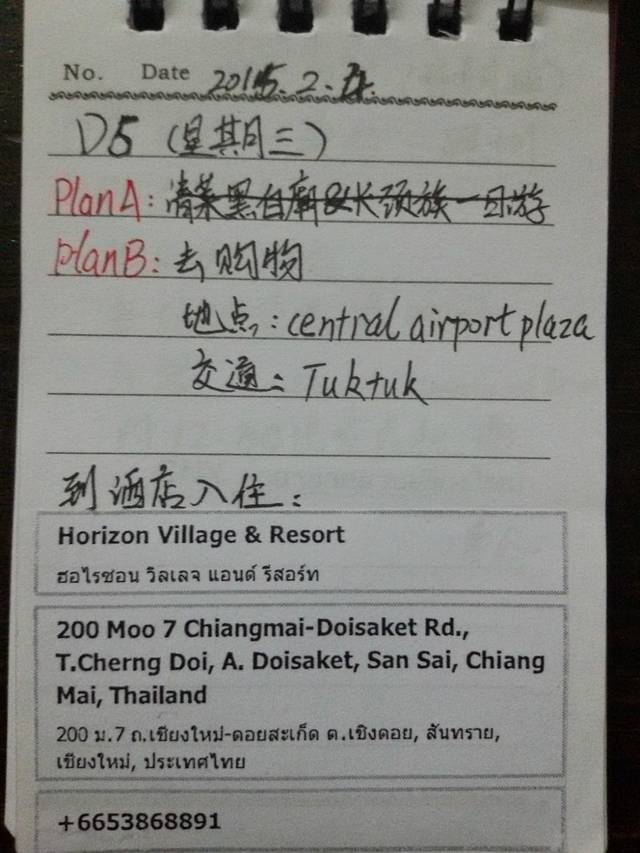 No. Date 2015.2.4.
D5 (星期三)
Plan A: 清莱黑白庙&长颈族一日游
Plan B: 去购物
地点: central airport plaza
交通: Tuktuk
到酒店入住:
Horizon Village & Resort
ฮอไรซอน วิลเลจ แอนด์ รีสอร์ท
200 Moo 7 Chiangmai-Doisaket Rd.,
T.Cherng Doi, A. Doisaket, San Sai, Chiang
Mai, Thailand
200 ม.7 ถ.เชียงใหม่-ดอยสะเก็ด ต.เชิงดอย, สันทราย,
เชียงใหม่, ประเทศไทย
+6653868891